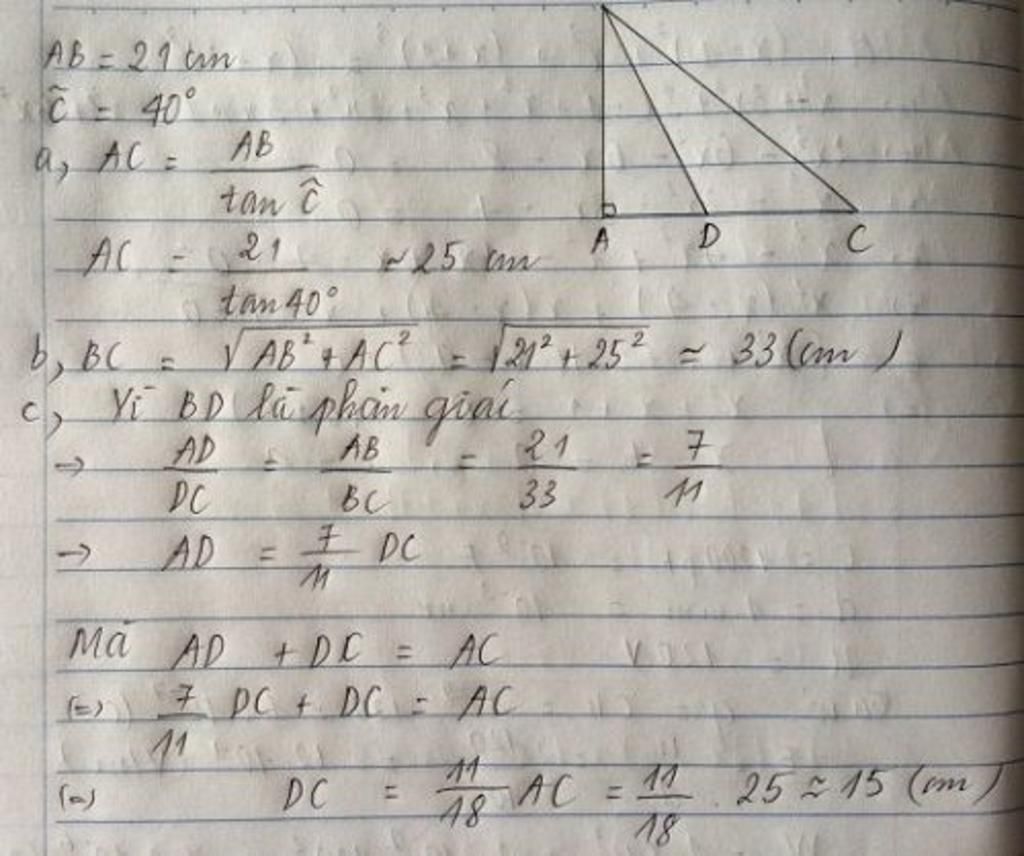 AB = 21 cm
Ĉ = 40°
a, AC = AB / tan Ĉ
A D C
AC = 21 / tan 40° ≈ 25 cm
b, BC = √(AB² + AC²) = √(21² + 25²) ≈ 33 (cm)
c, Vì BD là phân giác
→ AD / DC = AB / BC = 21 / 33 = 7 / 11
→ AD = 7 / 11 DC
Mà AD + DC = AC
(=) 7 / 11 DC + DC = AC
(=) DC = 11 / 18 AC = 11 / 18 . 25 ≈ 15 (cm)